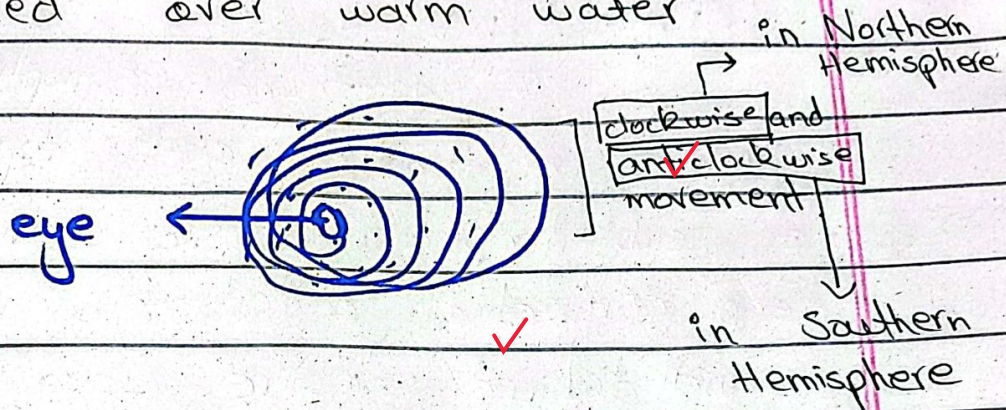 ed over warm water
in Northern
Hemisphere
clockwise and
anticlockwise
movement
eye
in Southern
Hemisphere